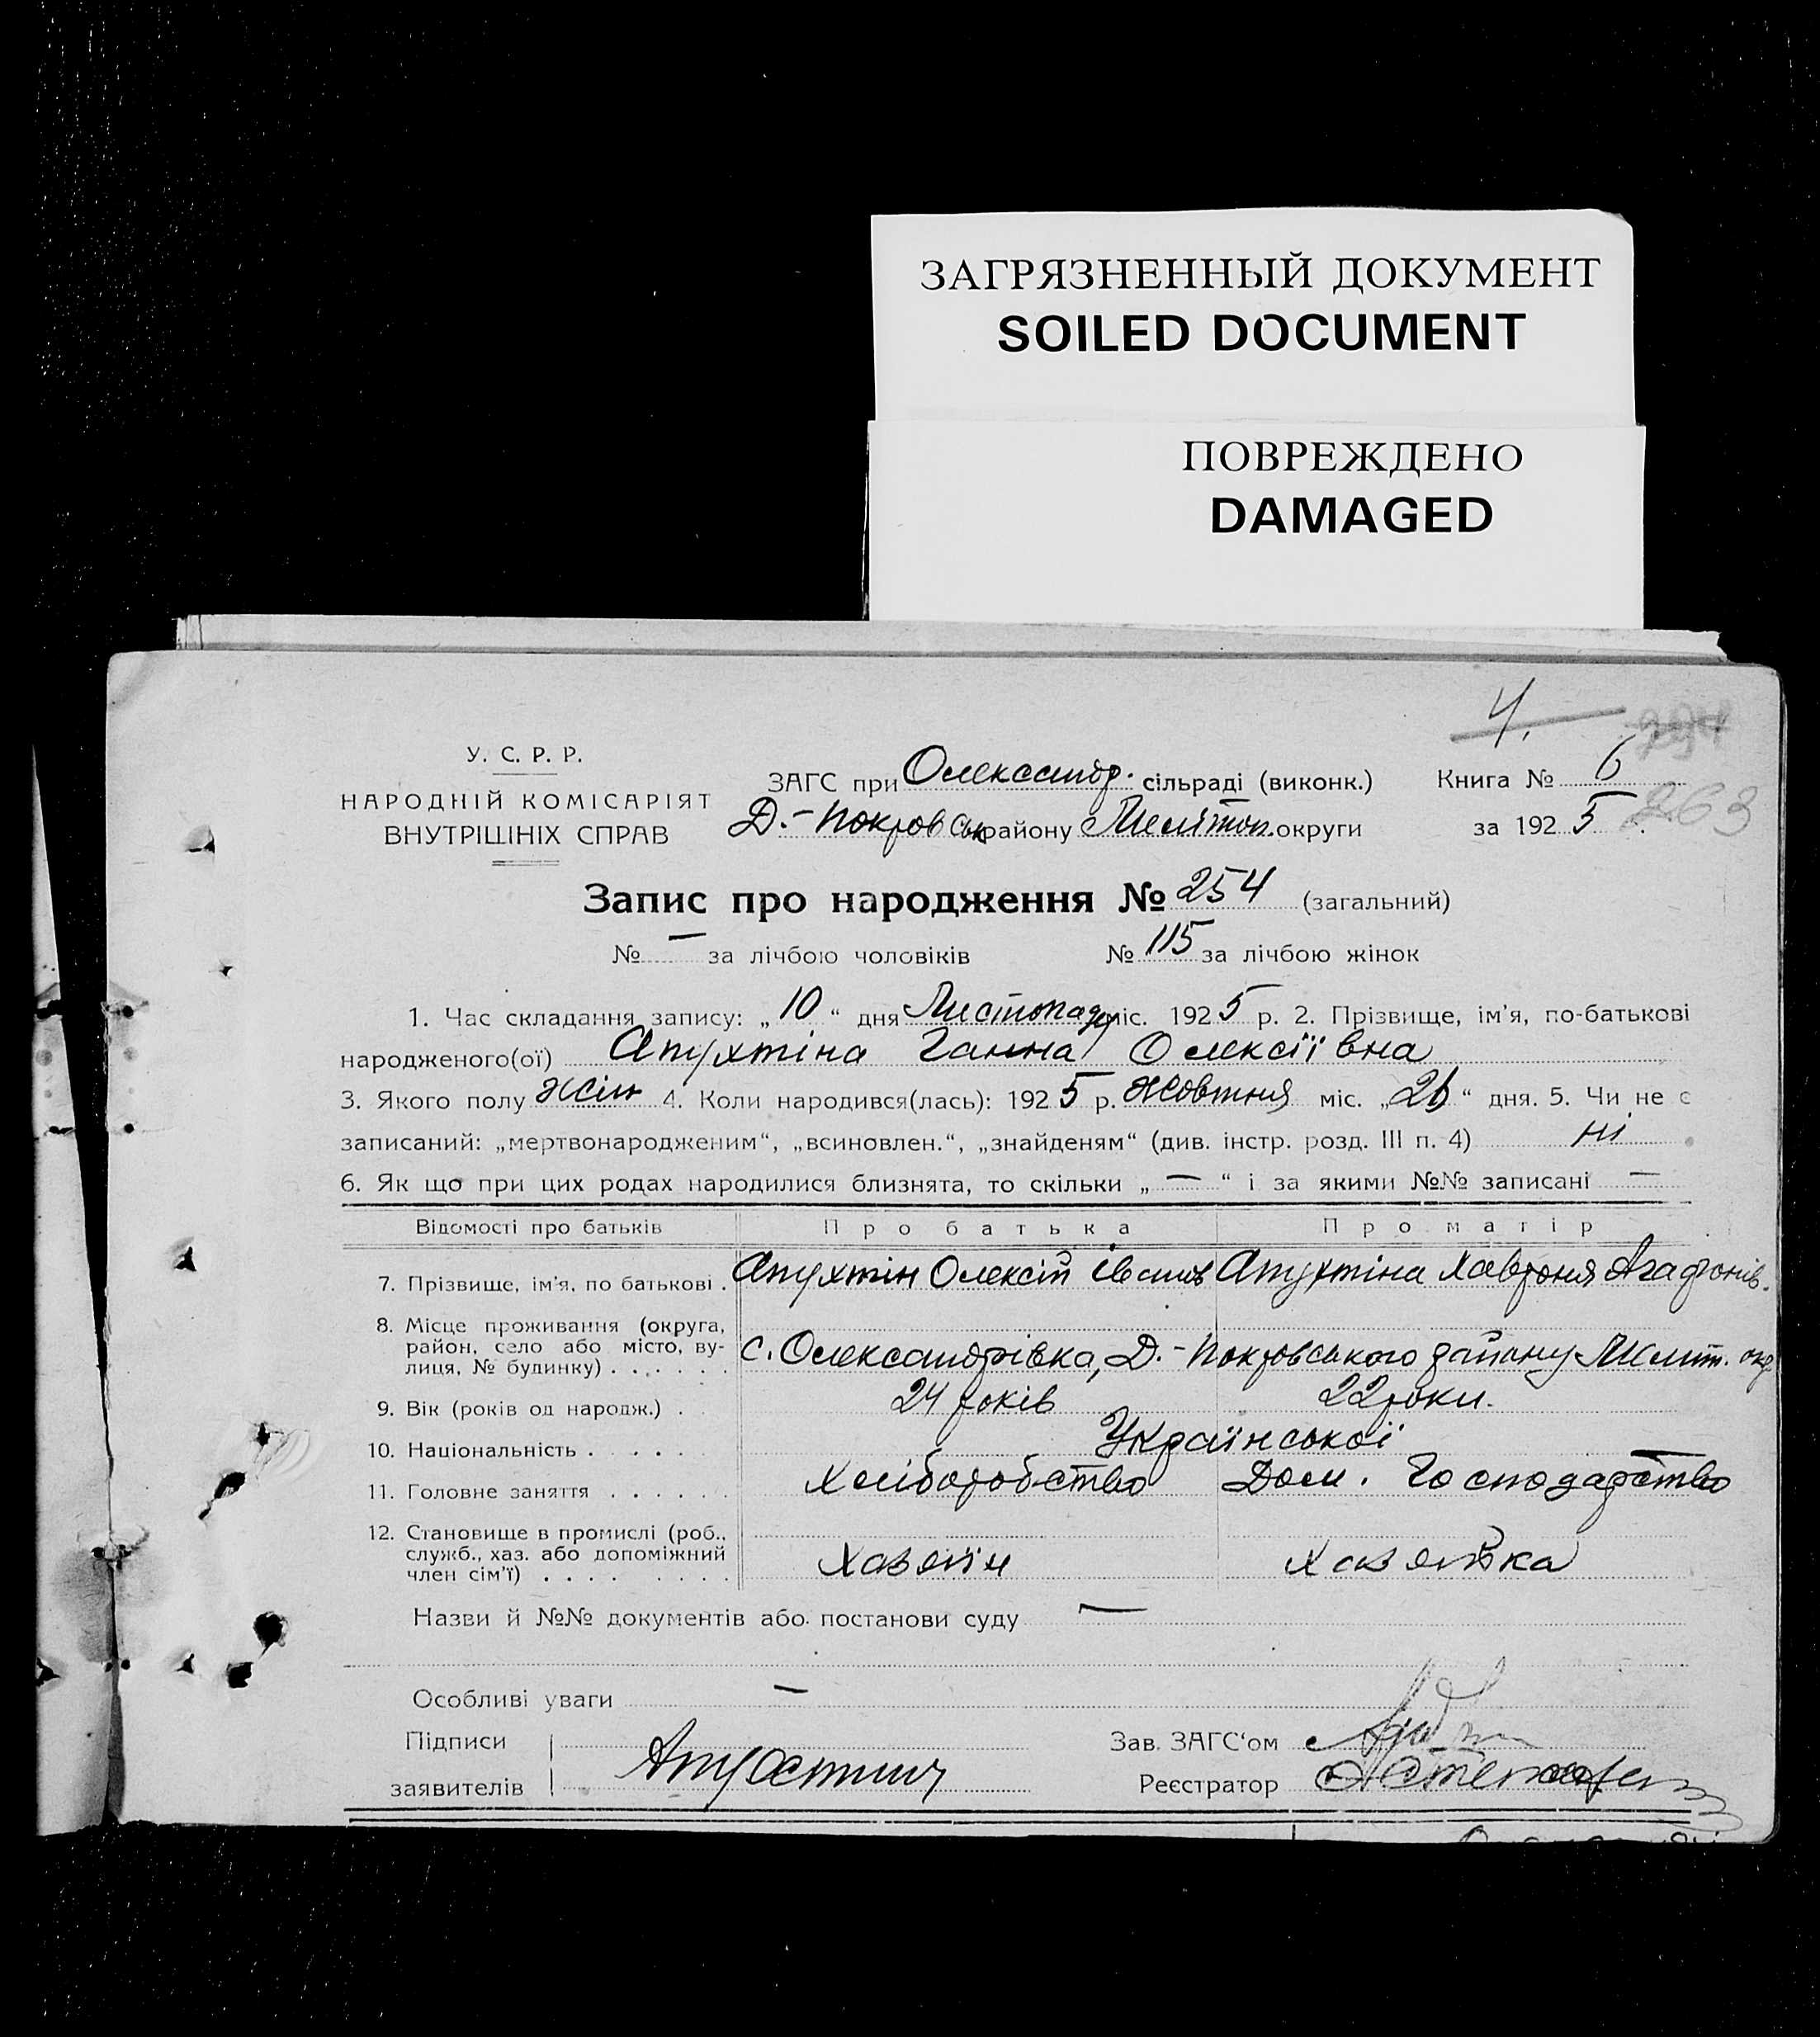 ЗАГРЯЗНЕННЫЙ ДОКУМЕНТ
SOILED DOCUMENT
ПОВРЕЖДЕНО
DAMAGED
4.
У. С. Р. Р.
НАРОДНІЙ КОМІСАРІЯТ
ВНУТРІШНІХ СПРАВ
ЗАГС при Олександр. сільраді (виконк.) Книга № 6
Д.-Покровськ району Мелітоп. округи за 1925 263
Запис про народження № 254 (загальний)
№ — за лічбою чоловіків № 115 за лічбою жінок
1. Час складання запису: „10“ дня Листопада міс. 1925 р. 2. Прізвище, ім'я, по-батькові
народженого(ої) Апухтіна Ганна Олексіївна
3. Якого полу жін 4. Коли народився(лась): 1925 р. Жовтня міс. „26“ дня. 5. Чи не є
записаний: „мертвонародженим“, „всиновлен.“, „знайденям“ (див. інстр. розд. III п. 4) ні
6. Як що при цих родах народилися близнята, то скільки „—“ і за якими №№ записані —
Відомості про батьків Про батька Про матір
7. Прізвище, ім'я, по батькові . Апухтін Олексій Іванов Апухтіна Хавроня Агафонів.
8. Місце проживання (округа,
район, село або місто, ву-
лиця, № будинку) . . . . . . с. Олександрівка, Д.-Покровського району Меліт. окр
9. Вік (років од народж.) . 24 років 22 роки.
10. Національність . . . . Української
11. Головне заняття . . . . . . Хліборобство Дом. Господарство
12. Становище в промислі (роб.,
служб., хаз. або допоміжний
член сім'ї) . . . . . . . . Хазяїн Хазяйка
Назви й №№ документів або постанови суду —
Особливі уваги —
Підписи
заявителів Апухтин
Зав. ЗАГС'ом
Реєстратор